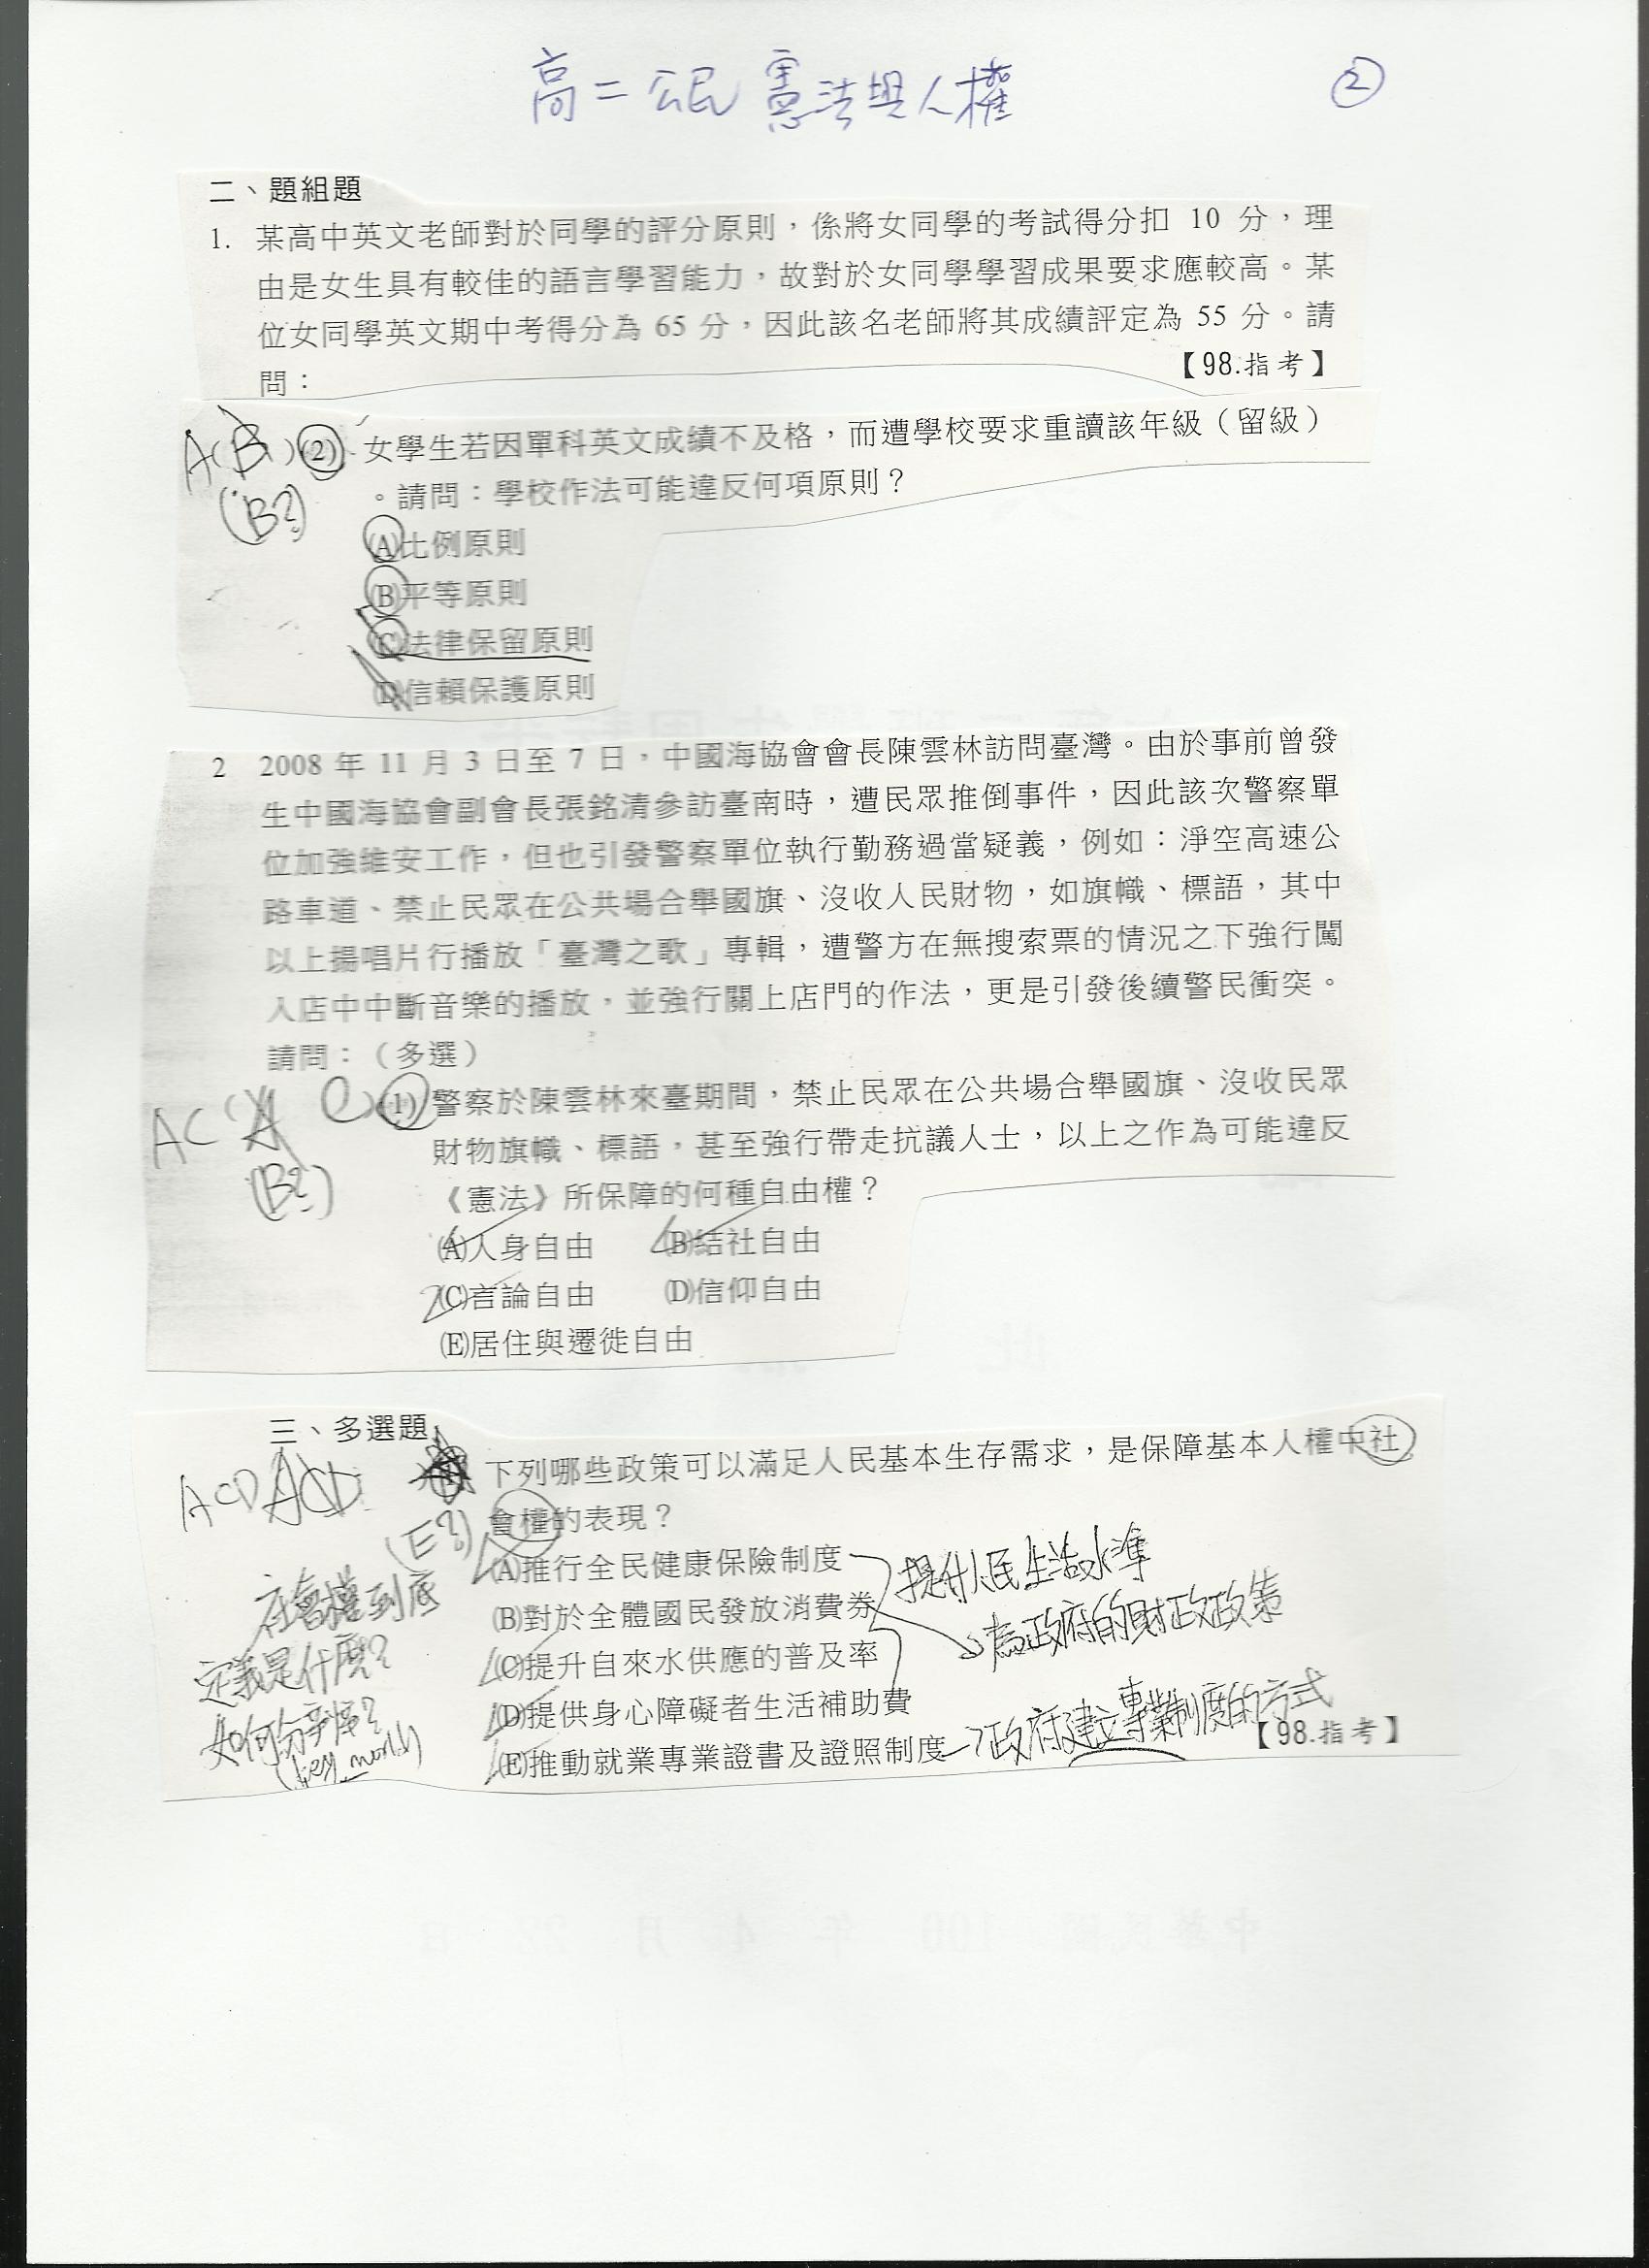 高二公民 憲法與人權
②
二、題組題
1. 某高中英文老師對於同學的評分原則，係將女同學的考試得分扣 10 分，理
由是女生具有較佳的語言學習能力，故對於女同學學習成果要求應較高。某
位女同學英文期中考得分為 65 分，因此該名老師將其成績評定為 55 分。請
問：
【98.指考】
A(B)(2) 女學生若因單科英文成績不及格，而遭學校要求重讀該年級（留級）
(B?)
。請問：學校作法可能違反何項原則？
(A)比例原則
(B)平等原則
(C)法律保留原則
(D)信賴保護原則
2 2008 年 11 月 3 日至 7 日，中國海協會會長陳雲林訪問臺灣。由於事前曾發
生中國海協會副會長張銘清參訪臺南時，遭民眾推倒事件，因此該次警察單
位加強維安工作，但也引發警察單位執行勤務過當疑義，例如：淨空高速公
路車道、禁止民眾在公共場合舉國旗、沒收人民財物，如旗幟、標語，其中
以上揚唱片行播放「臺灣之歌」專輯，遭警方在無搜索票的情況之下強行闖
入店中中斷音樂的播放，並強行關上店門的作法，更是引發後續警民衝突。
請問：（多選）
AC (1) 警察於陳雲林來臺期間，禁止民眾在公共場合舉國旗、沒收民眾
財物旗幟、標語，甚至強行帶走抗議人士，以上之作為可能違反
(B?)
《憲法》所保障的何種自由權？
(A)人身自由 (B)結社自由
(C)言論自由 (D)信仰自由
(E)居住與遷徙自由
三、多選題
ACD ACD 下列哪些政策可以滿足人民基本生存需求，是保障基本人權中社
會權的表現？
(E?)
(A)推行全民健康保險制度
(B)對於全體國民發放消費券
(C)提升自來水供應的普及率
(D)提供身心障礙者生活補助費
(E)推動就業專業證書及證照制度
提升人民生活水準
為政府的財政政策
→政府建立專業制度的方式
【98.指考】
社會權到底
定義是什麼?
如何分辨?